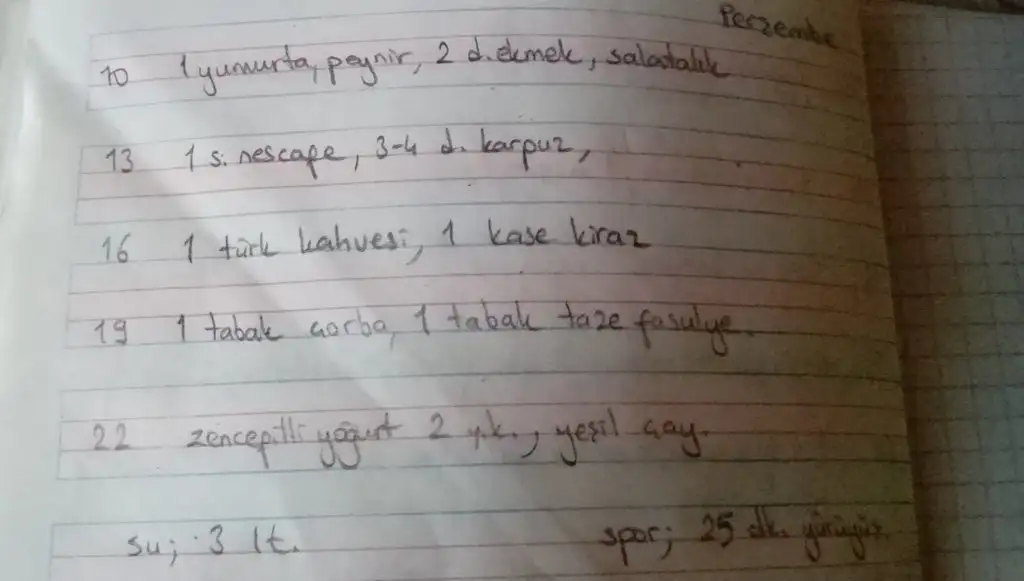 Perzembe
10 1 yumurta, peynir, 2 d. ekmek, salatalık
13 1 s. nescape, 3-4 d. karpuz,
16 1 türk kahvesi, 1 kase kiraz
19 1 tabak çorba, 1 tabak taze fasulye.
22 zencepilli yoğurt 2 y.k., yeşil çay.
su; 3 lt. spor; 25 dk. yürüyüş.